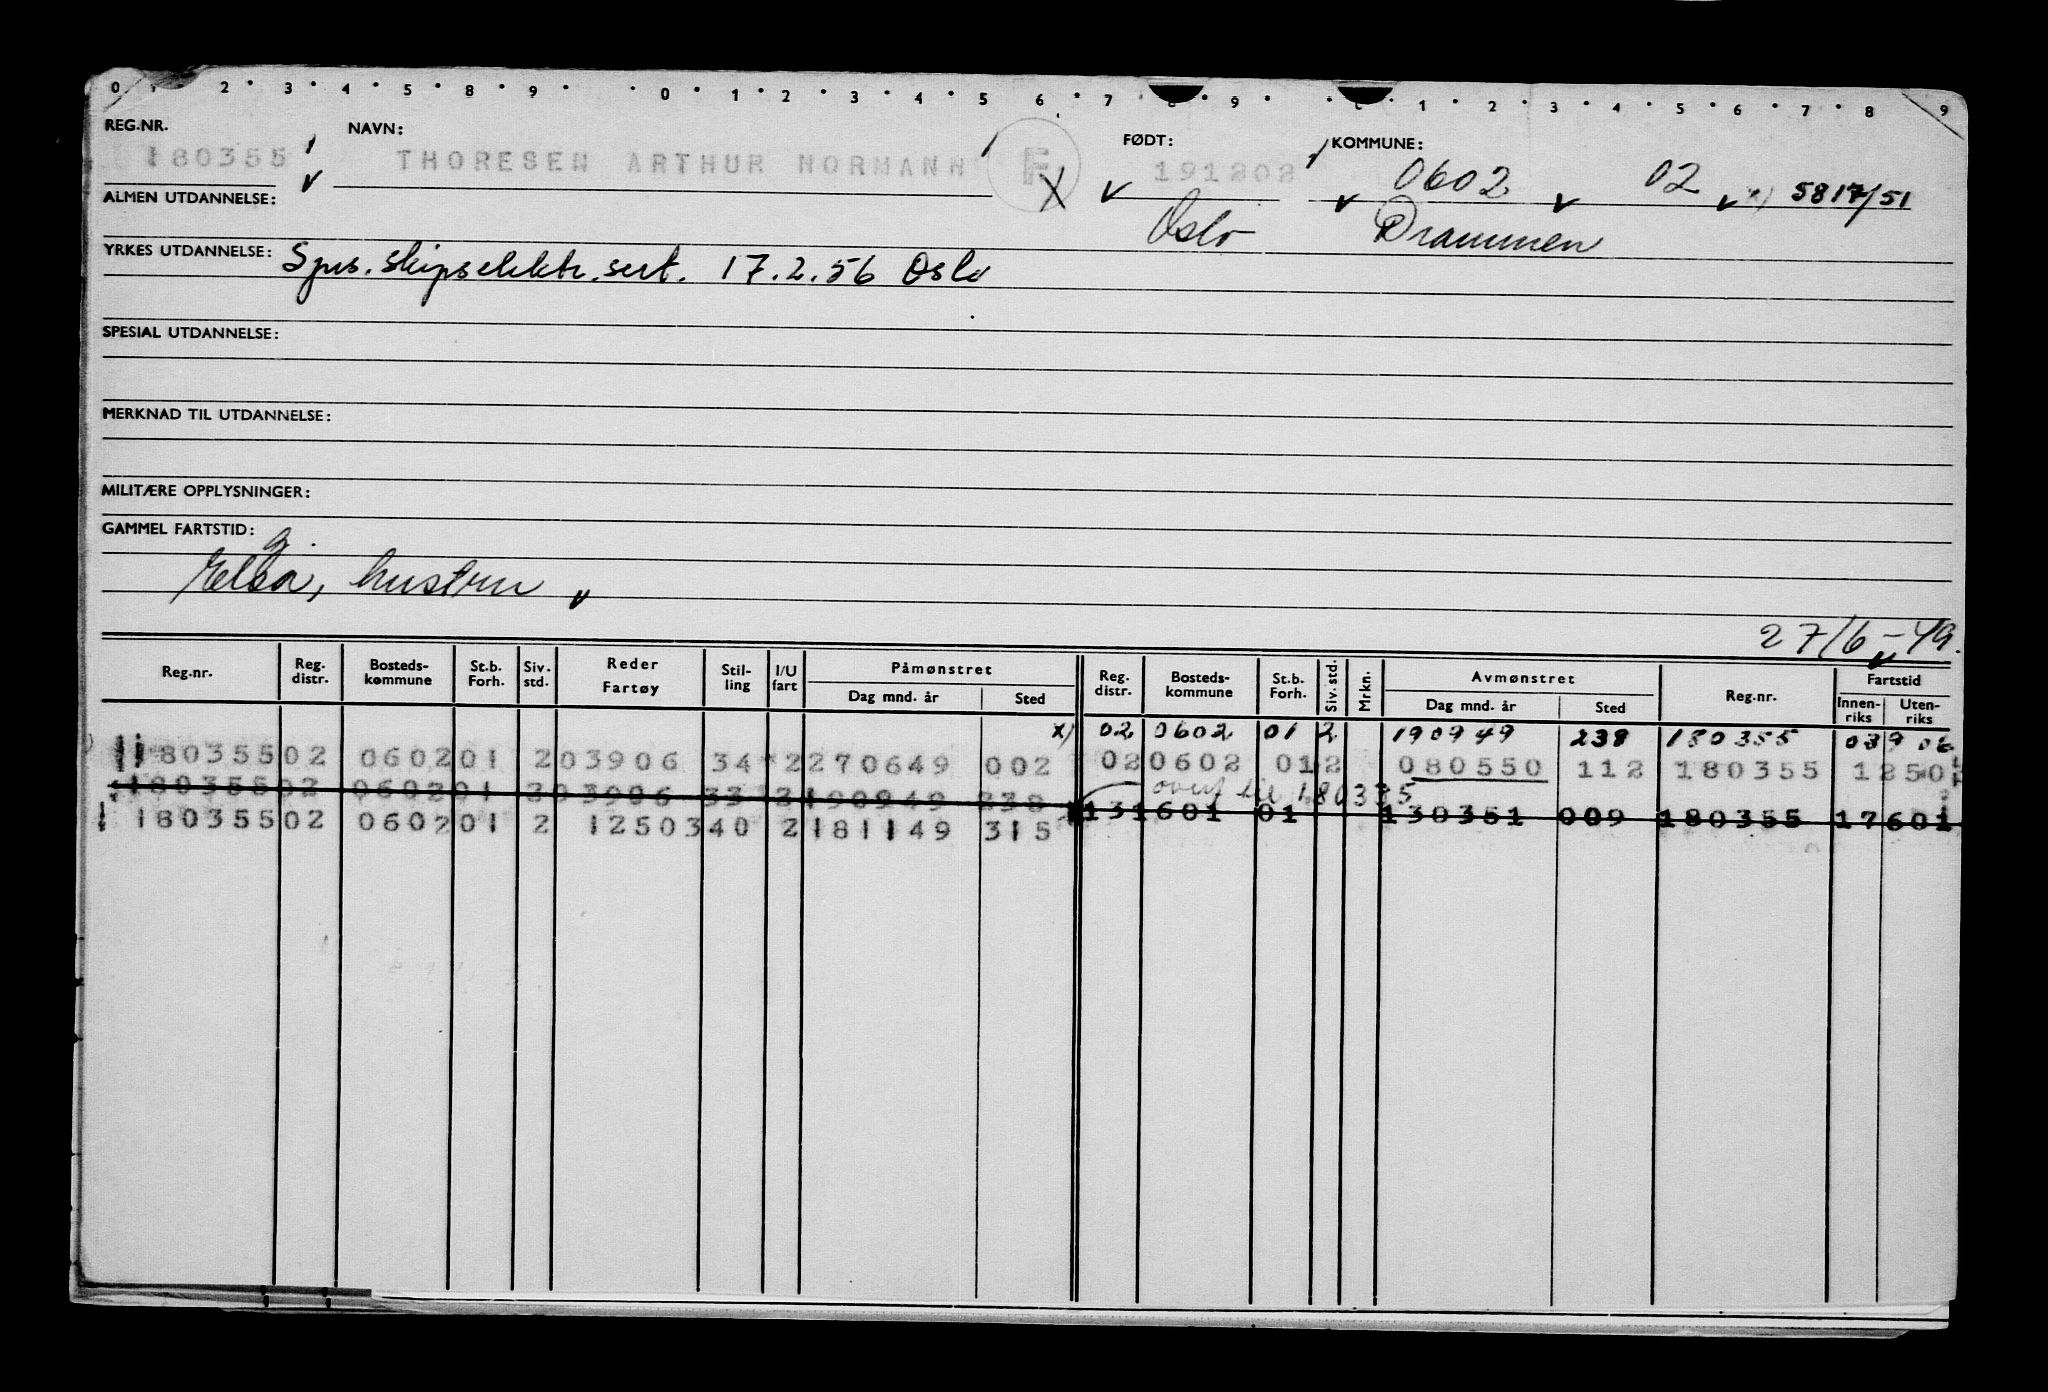 0 1 2 3 4 5 6 7 8 9 0 1 2 3 4 5 6 7 8 9 1 2 3 4 5 6 7 8 9
REG.NR. NAVN: FØDT: KOMMUNE:
180355 THORESEN ARTHUR NORMANN F 191202 0602 02 x) 5817/51
ALMEN UTDANNELSE: Oslo Drammen
YRKES UTDANNELSE: Spes. skipselektr. sert. 17.2.56 Oslo
SPESIAL UTDANNELSE:
MERKNAD TIL UTDANNELSE:
MILITÆRE OPPLYSNINGER:
GAMMEL FARTSTID:
g.
Elsa, hustru
27/6-49.
Reg.nr. Reg. distr. Bosteds-kommune St.b. Forh. Siv. std. Reder Fartøy Stil-ling I/U fart Påmønstret Dag mnd. år Sted Reg. distr. Bosteds-kommune St.b. Forh. Siv. std. Mrkn. Avmønstret Dag mnd. år Sted Reg.nr. Fartstid Innen-riks Uten-riks
x) 02 0602 01 2 190949 238 180355 03906
180355 02 0602 01 2 03906 34 2 270649 002 02 0602 01 2 080550 112 180355 12503
180355 02 0602 01 2 03906 33 2 190949 238 overf til 180335
131601 01 130351 009 180355 17601
180355 02 0602 01 2 12503 40 2 181149 315